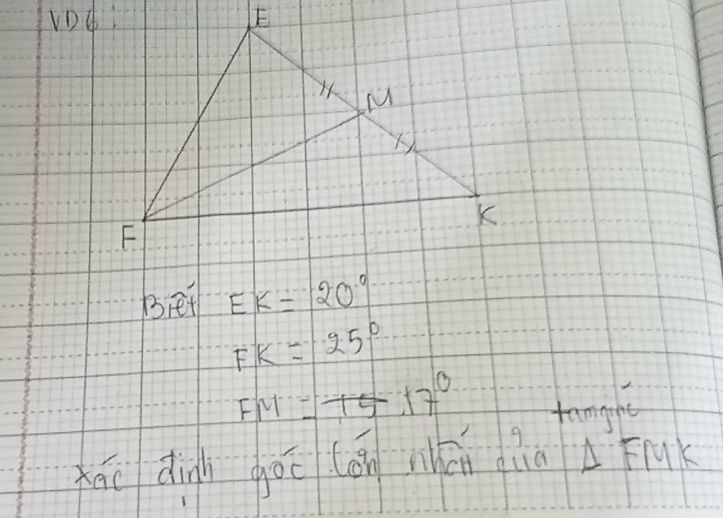 VD6:
E
M
F
K
Biết EK = 20°
FK = 25°
FM = 15 17°
tam giác
xác định góc lớn nhất của Δ FMK